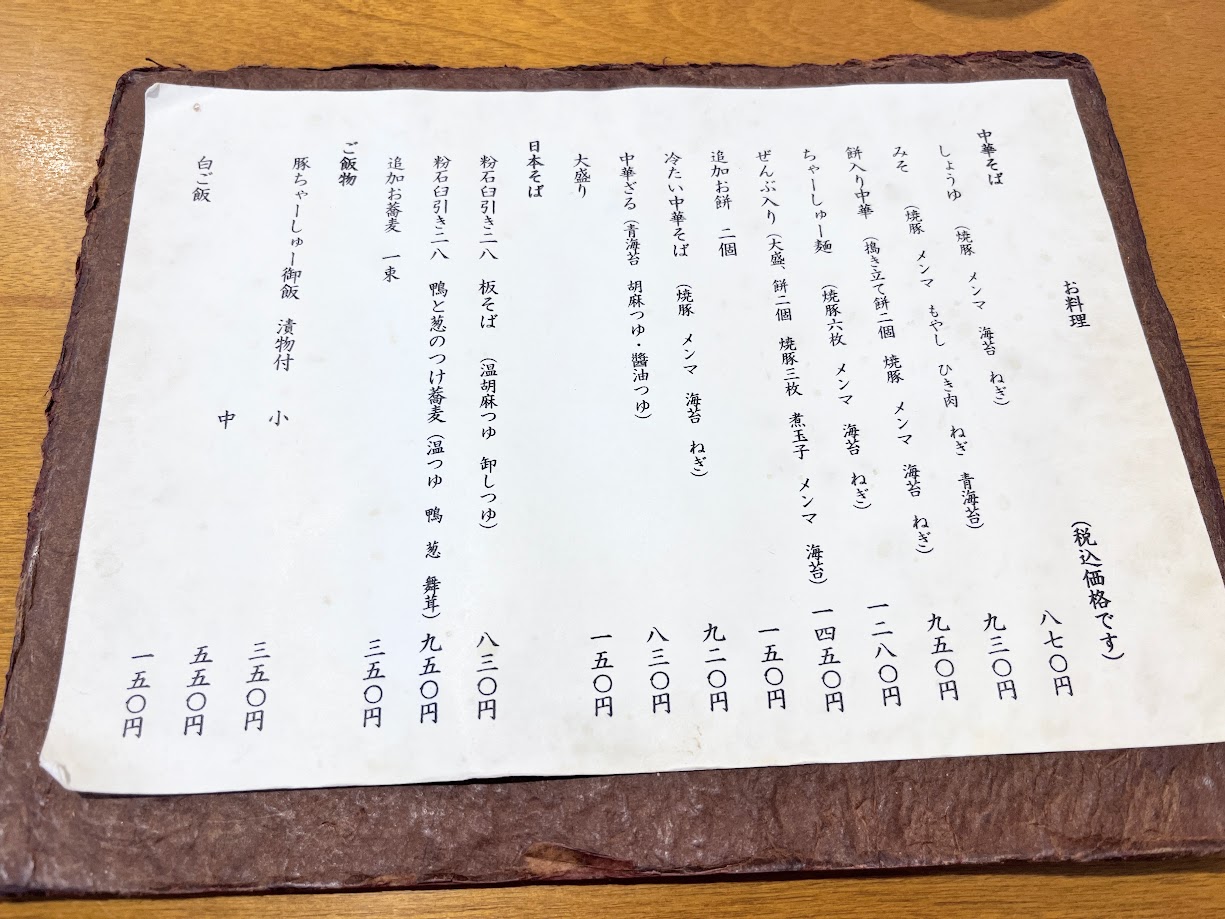 お料理 (税込価格です)
中華そば
しょうゆ (焼豚 メンマ 海苔 ねぎ) 八七〇円
みそ (焼豚 メンマ もやし ひき肉 ねぎ 青海苔) 九三〇円
餅入り中華 (搗き立て餅二個 焼豚 メンマ 海苔 ねぎ) 九五〇円
ちゃーしゅー麺 (焼豚六枚 メンマ 海苔 ねぎ) 一二八〇円
ぜんぶ入り (大盛、餅二個 焼豚三枚 煮玉子 メンマ 海苔) 一四五〇円
追加お餅 二個 一五〇円
冷たい中華そば (焼豚 メンマ 海苔 ねぎ) 九二〇円
中華ざる (青海苔 胡麻つゆ・醬油つゆ) 八三〇円
大盛り 一五〇円
日本そば
粉石臼引き二八 板そば (温胡麻つゆ 卸しつゆ) 八三〇円
粉石臼引き二八 鴨と葱のつけ蕎麦 (温つゆ 鴨 葱 舞茸) 九五〇円
追加お蕎麦 一束 三五〇円
ご飯物
豚ちゃーしゅー御飯 漬物付 小 三五〇円
中 五五〇円
白ご飯 一五〇円